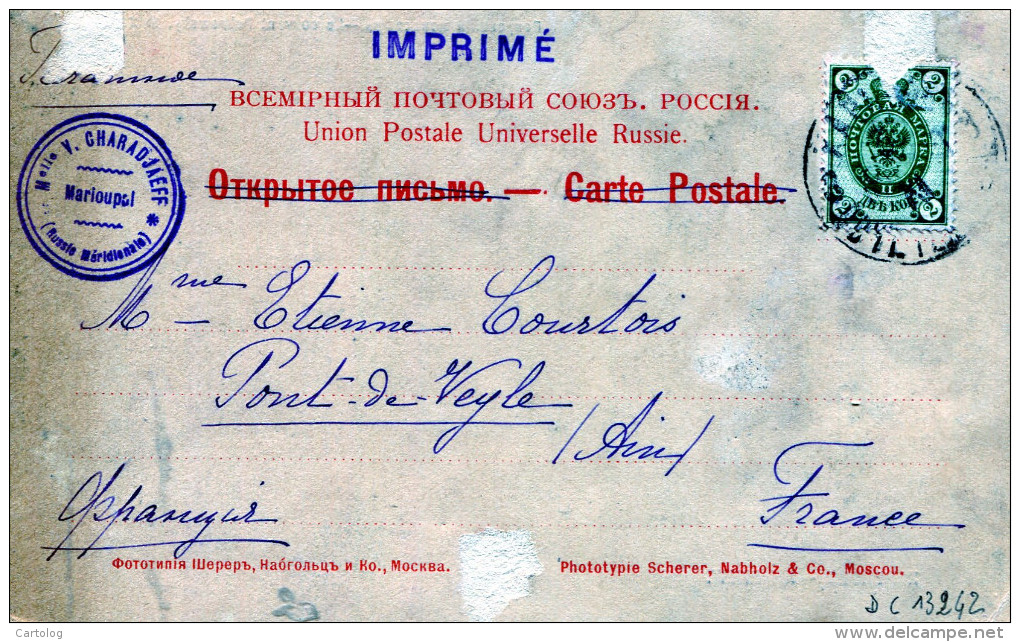 IMPRIMÉ
ВСЕМІРНЫЙ ПОЧТОВЫЙ СОЮЗЪ. РОССІЯ.
Union Postale Universelle Russie.
Открытое письмо. — Carte Postale.
Melle V. CHARADJAEFF
Marioupol
(Russie Méridionale)
2 2
ПОЧТОВАЯ МАРКА
ДВѢ КОП
2 2
Mme Etienne Courtois
Pont-de-Veyle
(Ain)
Франція
France
Фототипія Шереръ, Набгольцъ и Ко., Москва.
Phototypie Scherer, Nabholz & Co., Moscou.
DC 13242
Cartolog
delcampe.net